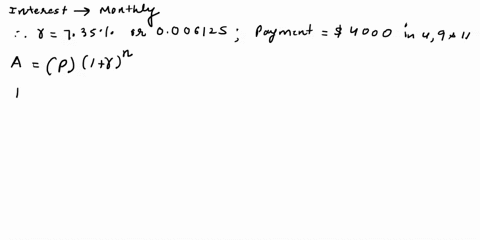 Interest → Monthly
∴ r = 7.35% or 0.006125 ; Payment = $ 4000 in 4, 9 & 11
A = (P) (1+r)^n